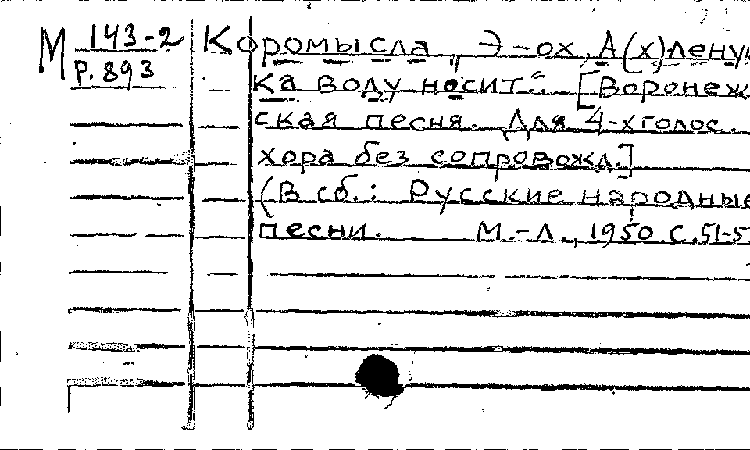 М 143-2
Р. 893
Коромысла „Э-ох, А(х)лену
ка воду носит“. [Воронеж
ская песня. Для 4-х голос.
хора без сопровожд.]
(В сб.: Русские народные
песни. М.-Л., 1950 с. 51-5